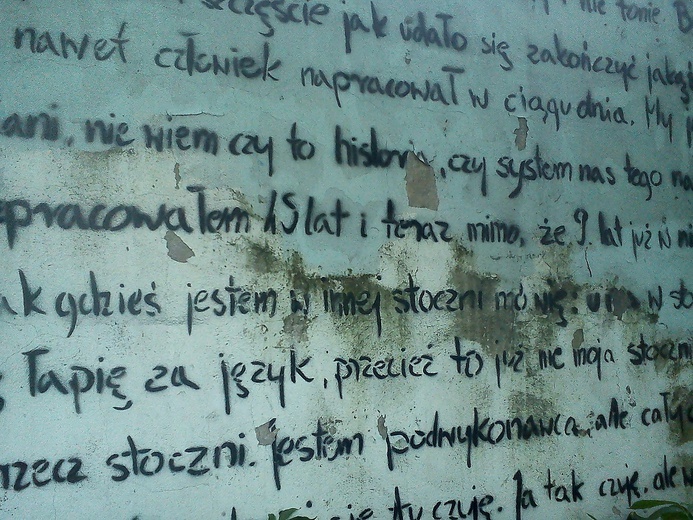 szczęście jak udało się zakończyć jakąś
nawet człowiek napracował w ciągu dnia. My
ani, nie wiem czy to historia, czy system nas tego na
pracowałem 45 lat i teraz mimo, że 9 lat już w
gdzieś jestem w innej stoczni mówię: u w sto
łapię za język, przecież to już nie moja stoczni
rzecz stoczni. jestem podwykonawcą, ale cały
ty czuję. Ja tak czuję, ale